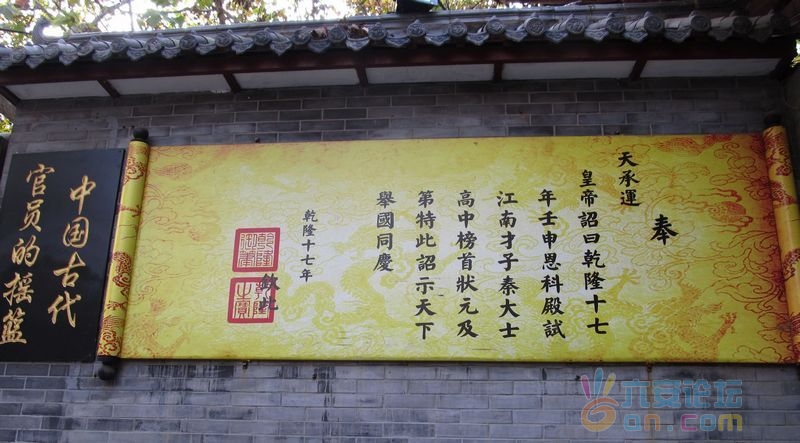 奉
天承運
皇帝詔曰乾隆十七
年壬申恩科殿試
江南才子秦大士
高中榜首狀元及
第特此詔示天下
舉國同慶
乾隆十七年
欽此
中国古代
官员的摇篮
六安论坛
an.com